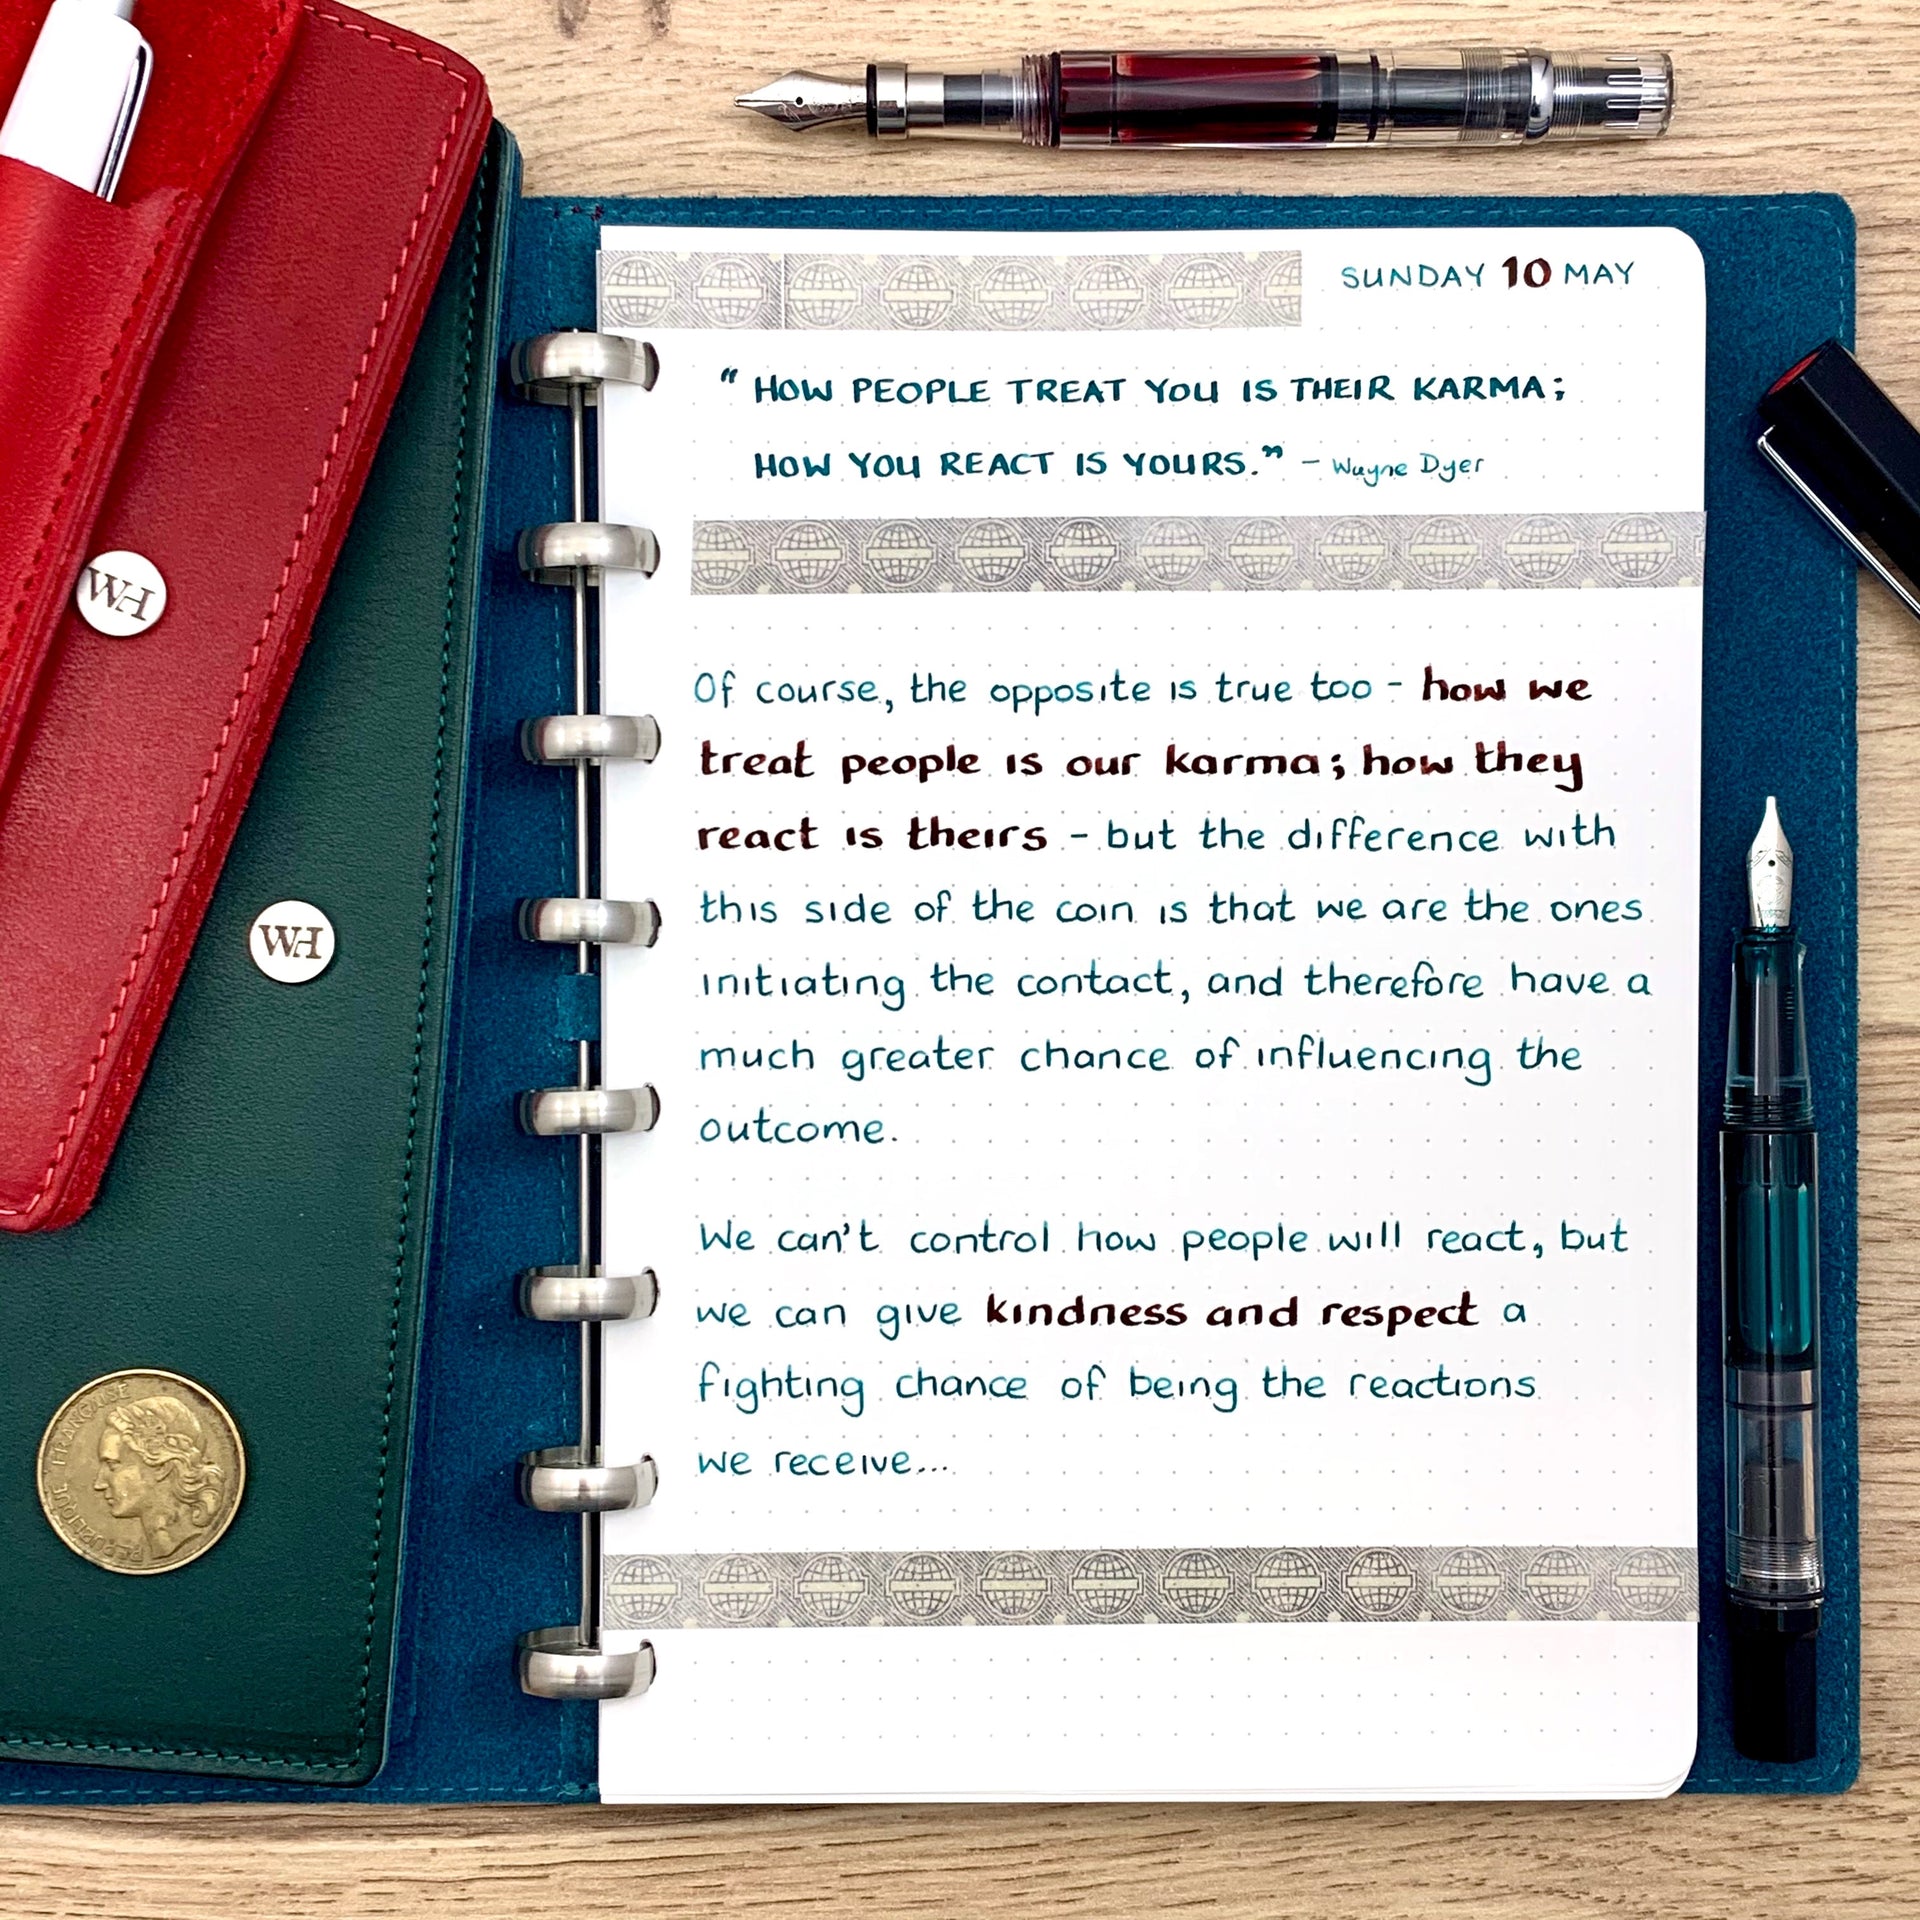 SUNDAY 10 MAY
“ HOW PEOPLE TREAT YOU IS THEIR KARMA;
HOW YOU REACT IS YOURS.” - Wayne Dyer
Of course, the opposite is true too - how we
treat people is our karma; how they
react is theirs - but the difference with
this side of the coin is that we are the ones
initiating the contact, and therefore have a
much greater chance of influencing the
outcome.
We can't control how people will react, but
we can give kindness and respect a
fighting chance of being the reactions
we receive...
WH
WH
REPUBLIQUE FRANÇAISE